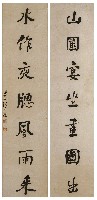 山圍宴坐畫圖出
水作夜牕風雨來